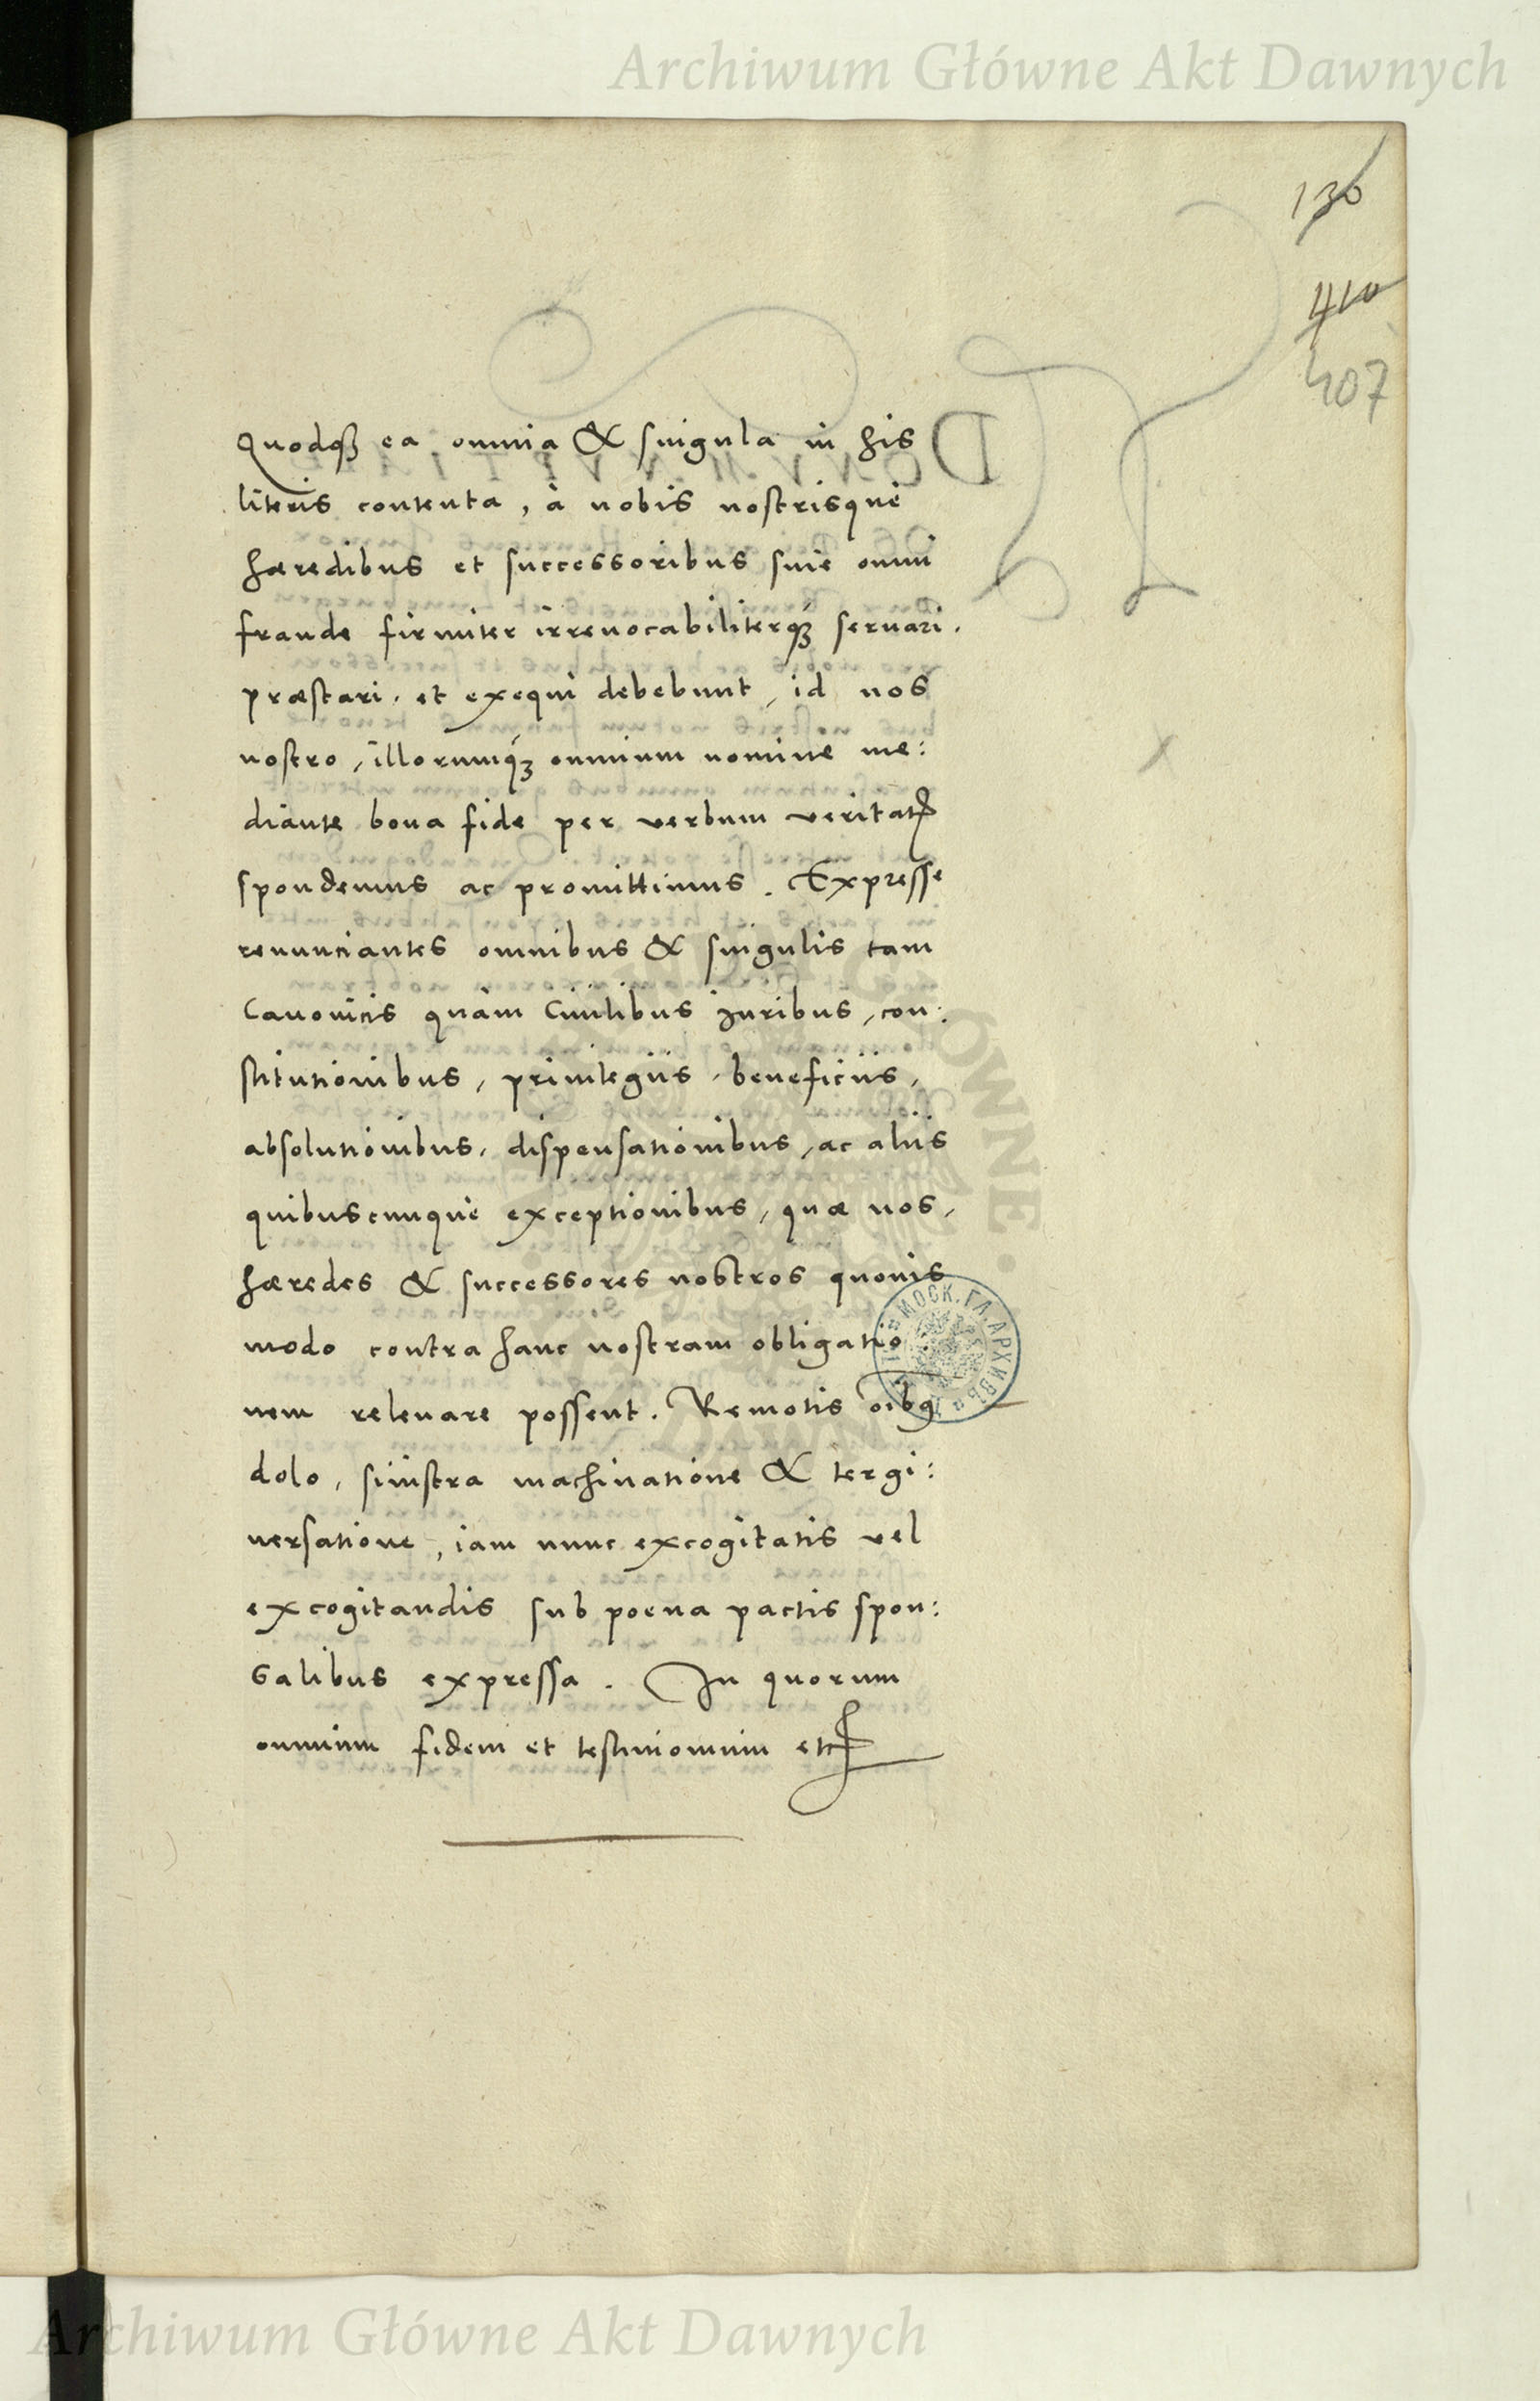 Archiwum Główne Akt Dawnych
130
410
407
Quodqꝫ ea omnia & singula in his
literis contenta, à nobis nostrisquè
hæredibus et successoribus sine omni
fraude firmiter irreuocabiliterqꝫ seruari.
præstari. et exequi debebunt, id nos
nostro, illorumqꝫ omnium nomine me:
diante bona fide per verbum veritatꝭ
spondemus ac promittimus. Expresse
renunciantes omnibus & singulis tam
Canonicis quàm Ciuilibus Juribus, con:
stitutionibus, priuilegiis, beneficiis,
absolutionibus, dispensationibus, ac aliis
quibuscunquè exceptionibus, quæ nos,
hæredes & successores nostros quouis
modo contra hanc nostram obligatio
nem releuare possent. Remotis oibꝫ
dolo, sinistra machinatione & tergi:
uersatione, iam nunc excogitatis vel
excogitandis sub poena pactis spon:
salibus expressa. In quorum
omnium fidem et testimonium etc
МОСК. ГЛ. АРХИВЪ
Archiwum Główne Akt Dawnych